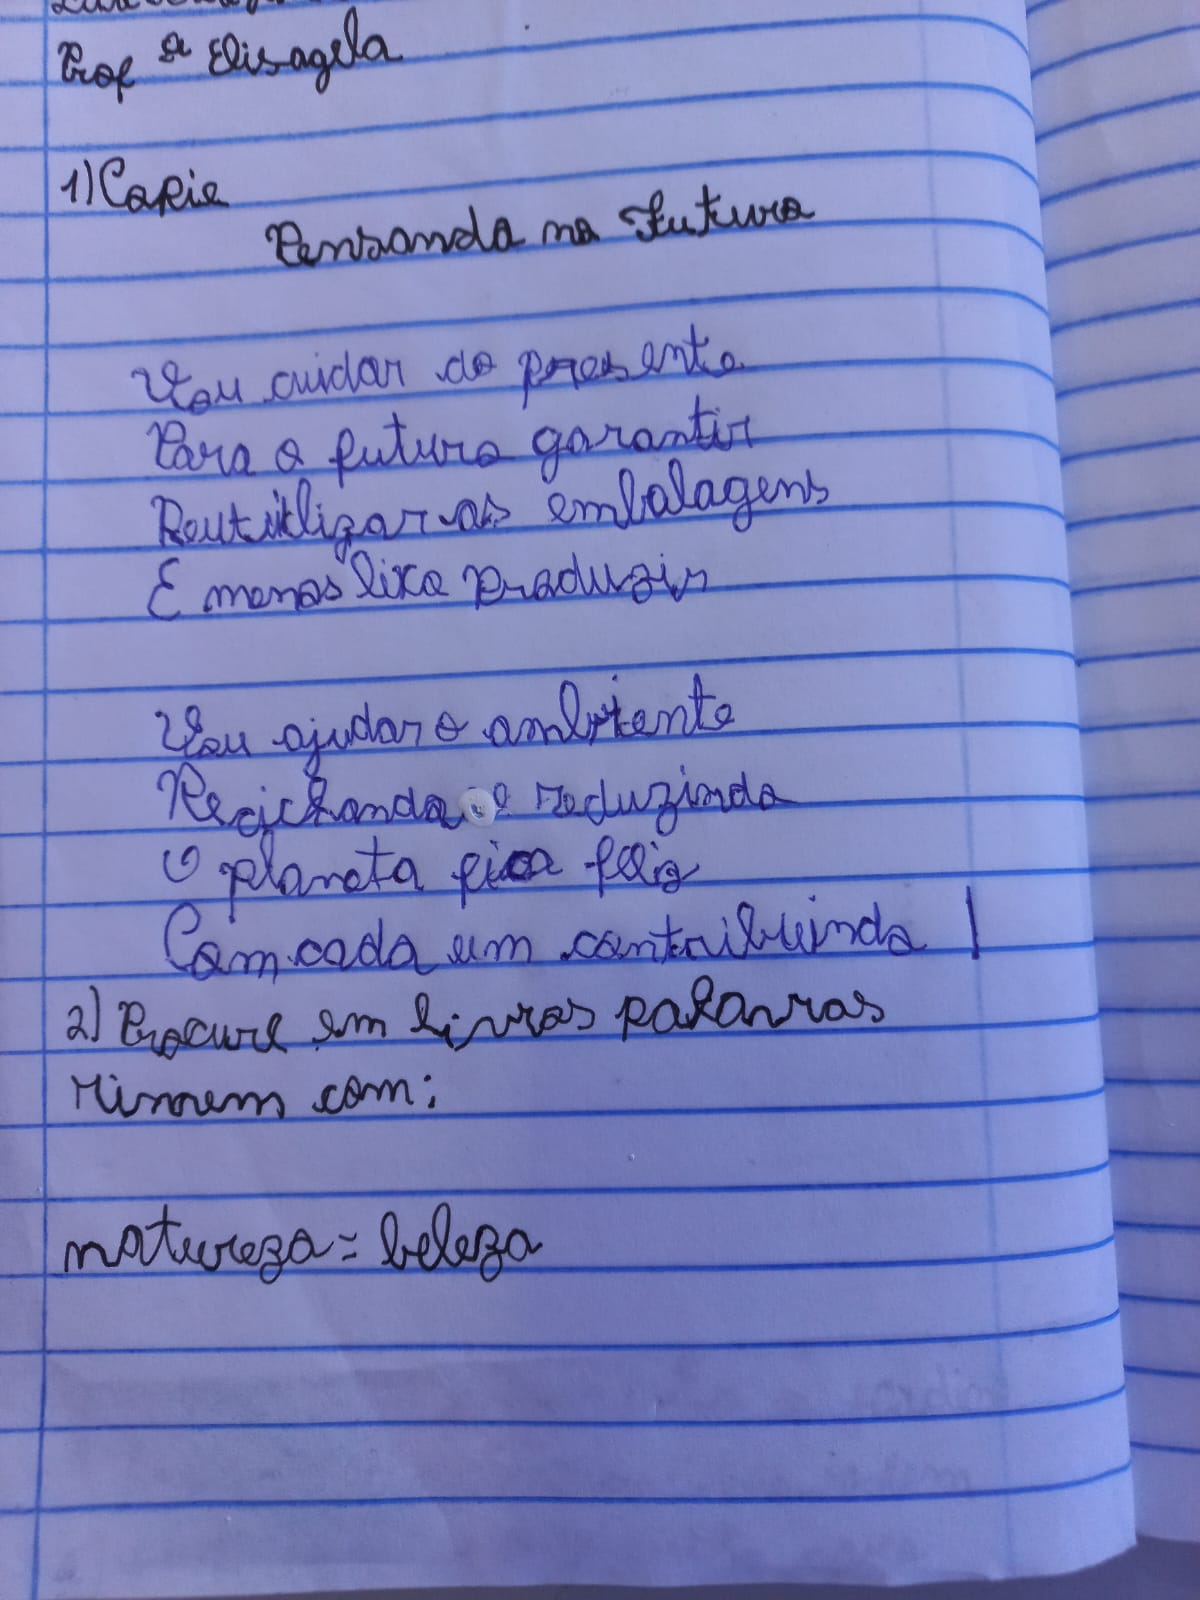 Prof ª Elisagela
1) Copie
Pensando no Futuro
Vou cuidar do presente
Para o futuro garantir
Reutilizar as embalagens
E menos lixo produzir
Vou ajudar o ambiente
Reciclando e reduzindo
O planeta fica feliz
Com cada um contribuindo !
2) Procure em livros palavras
rimem com:
natureza = beleza